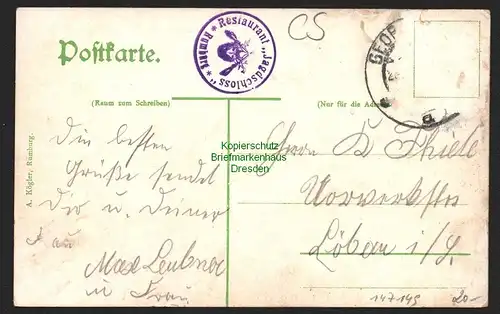 Postkarte.
Restaurant „Jagdschloss"
CS
GEOR
(Raum zum Schreiben)
(Nur für die Adresse
A. Kögler, Rumburg.
Kopierschutz
Briefmarkenhaus
Dresden
Die besten
Grüße sendet
Dir u. Deiner
Frau
Max Leubner
u Frau
Herrn K Thiele
Vorwerkstr
Löbau i/S.
147149
20-